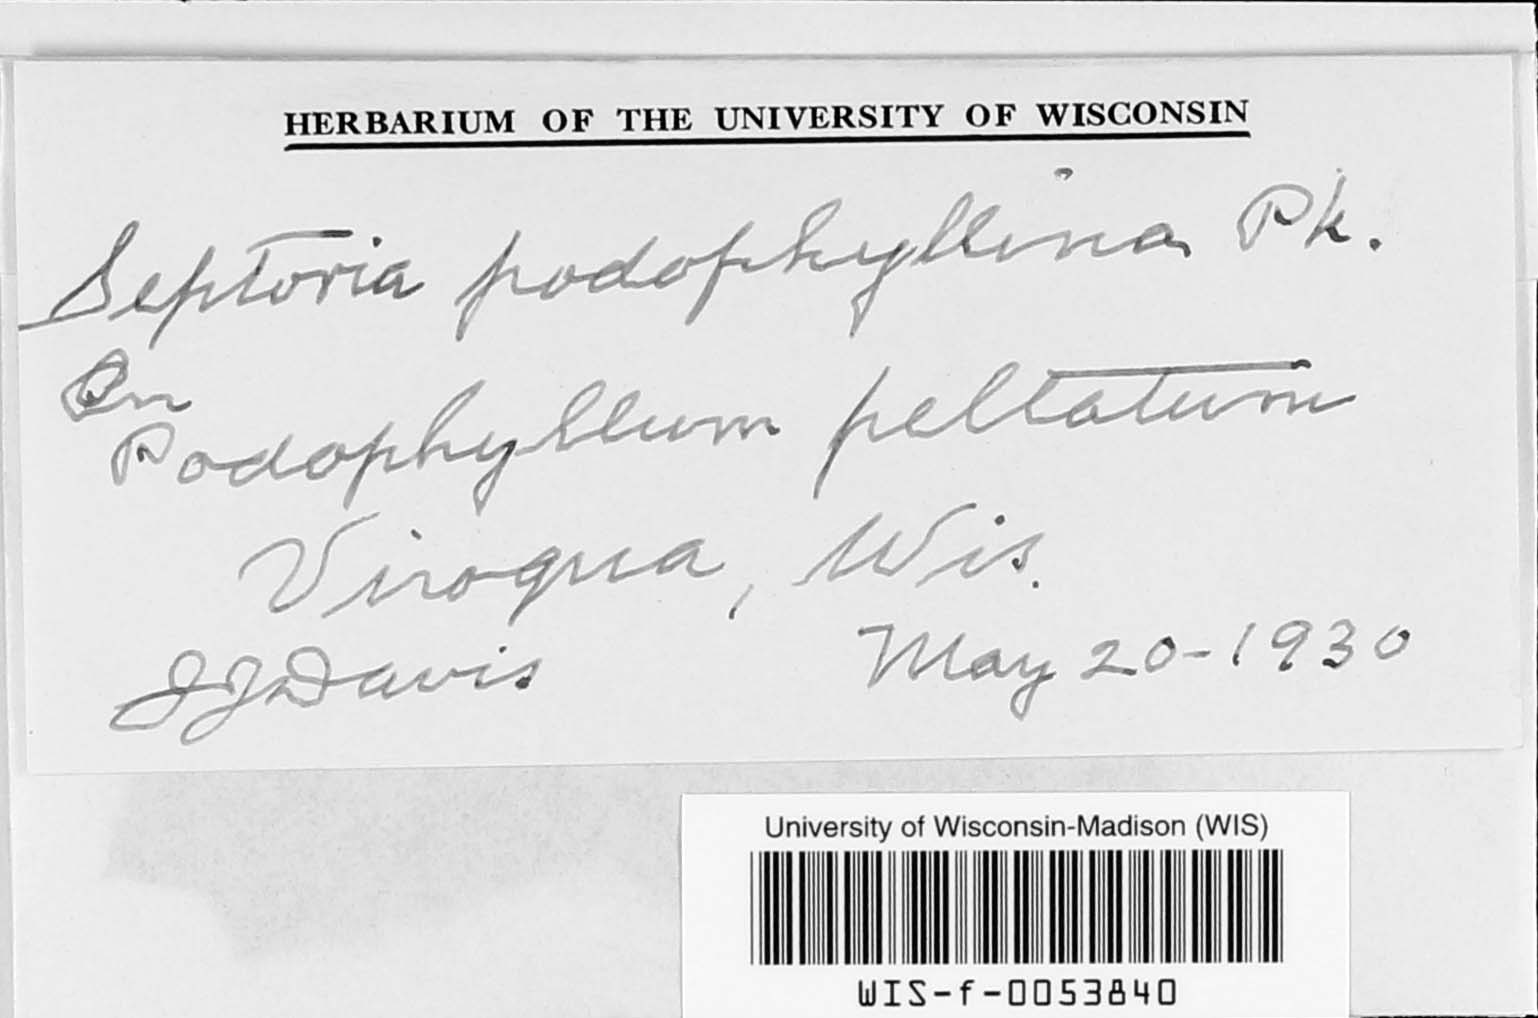 HERBARIUM OF THE UNIVERSITY OF WISCONSIN
Septoria podophyllina Pk.
On
Podophyllum peltatum
Viroqua, Wis.
JJDavis May 20-1930
University of Wisconsin-Madison (WIS)
WIS-f-0053840